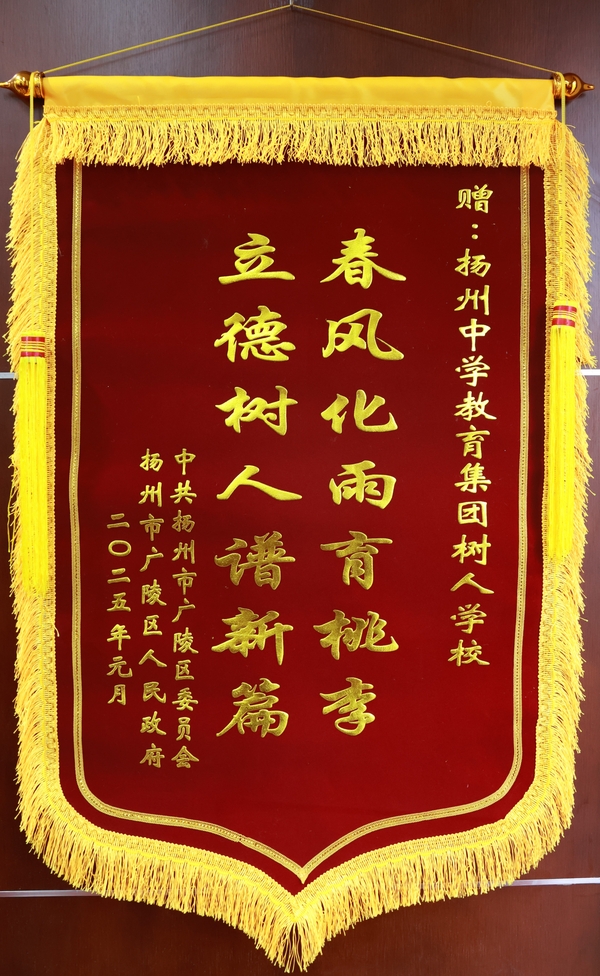 赠：扬州中学教育集团树人学校
春风化雨育桃李
立德树人谱新篇
中共扬州市广陵区委员会
扬州市广陵区人民政府
二〇二五年元月